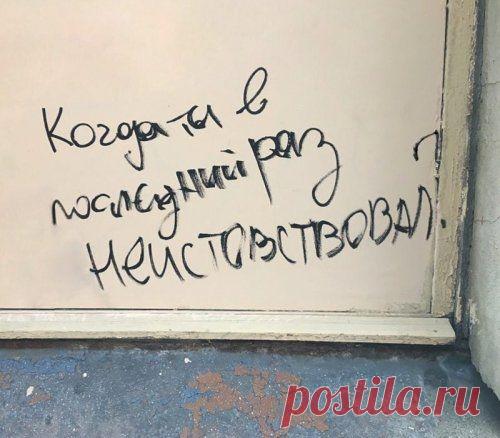 Когда ты в
последний раз
неистовствовал?
postila.ru